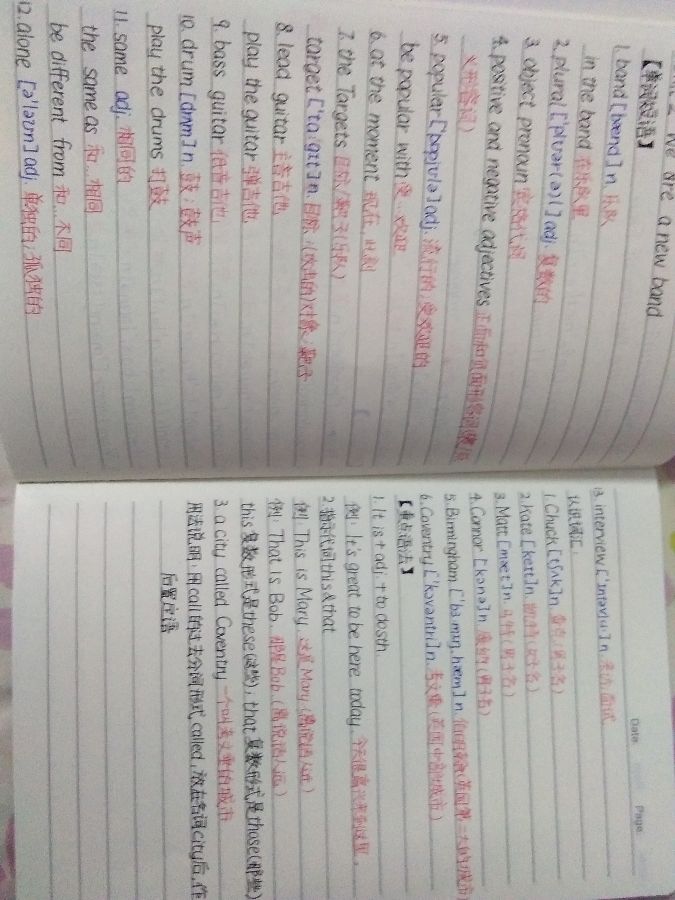 We are a new band
【单词短语】
1. band [bænd] n. 乐队
in the band 在乐队里
2. plural ['plʊər(ə)l] adj. 复数的
3. object pronoun 宾格代词
4. positive and negative adjectives 正面和负面形容词(褒/贬
义形容词)
5. popular ['pɒpjʊlə] adj. 流行的;受欢迎的
be popular with 受…欢迎
6. at the moment 现在,此刻
7. the Targets 目标/靶子(乐队)
target ['tɑ:gɪt] n. 目标;(攻击的)对象;靶子
8. lead guitar 主吉他
play the guitar 弹吉他
9. bass guitar 低音吉他
10. drum [drʌm] n. 鼓;鼓声
play the drums 打鼓
11. same adj. 相同的
the same as 和…相同
be different from 和…不同
12. alone [ə'ləʊn] adj. 单独的;孤独的
Date. Page.
13. interview ['ɪntəvju:] n. 采访,面试
认识词汇
1. Chuck [tʃʌk] n. 查克(男子名)
2. Kate [keɪt] n. 凯特(女子名)
3. Matt [mæt] n. 马特(男子名)
4. Connor [kɒnə] n. 康纳(男子名)
5. Birmingham ['bɜ:mɪŋ.hæm] n. 伯明翰(英国第二大的城市)
6. Coventry ['kɒvəntri] n. 考文垂(英国中部城市)
【重点语法】
1. It is + adj. + to do sth.
例: It's great to be here today. 今天很高兴来到这里。
2. 指示代词this & that
例: This is Mary. 这是Mary.(离说话人近)
例: That is Bob. 那是Bob.(离说话人远)
this复数形式是these(这些); that复数形式是those(那些)
3. a city called Coventry 一个叫考文垂的城市
用法说明:用call的过去分词形式called,放在名词city后,作
后置定语